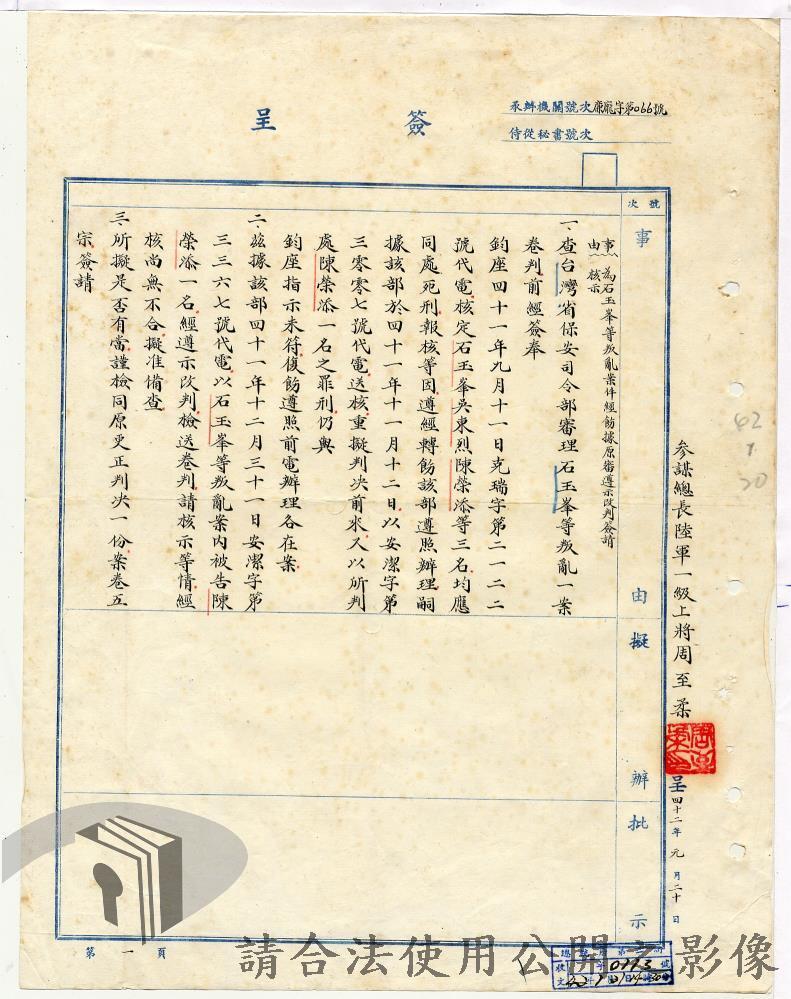 簽呈
承辦機關號次 廉龐字第066號
侍從秘書號次
參謀總長陸軍一級上將周至柔 呈 四十二年元月二十日
42
1
20
號次
事由
擬辦
批示
事由:為石玉峯等叛亂案件經飭據原審遵示改判簽請
核示
一、查台灣省保安司令部審理石玉峯等叛亂一案
卷判前經簽奉
鈞座四十一年九月十一日克瑞字第二一二二
號代電核定石玉峯吳東烈陳榮添等三名均應
同處死刑報核等因遵經轉飭該部遵照辦理嗣
據該部於四十一年十一月十二日以安潔字第
三零零七號代電送核重擬判決前來又以所判
處陳榮添一名之罪刑仍與
鈞座指示未符復飭遵照前電辦理各在案
二、茲據該部四十一年十二月三十一日安潔字第
三三六七號代電以石玉峯等叛亂案內被告陳
榮添一名經遵示改判檢送卷判請核示等情經
核尚無不合擬准備查
三、所擬是否有當謹檢同原更正判決一份案卷五
宗簽請
第一頁
請合法使用公開之影像